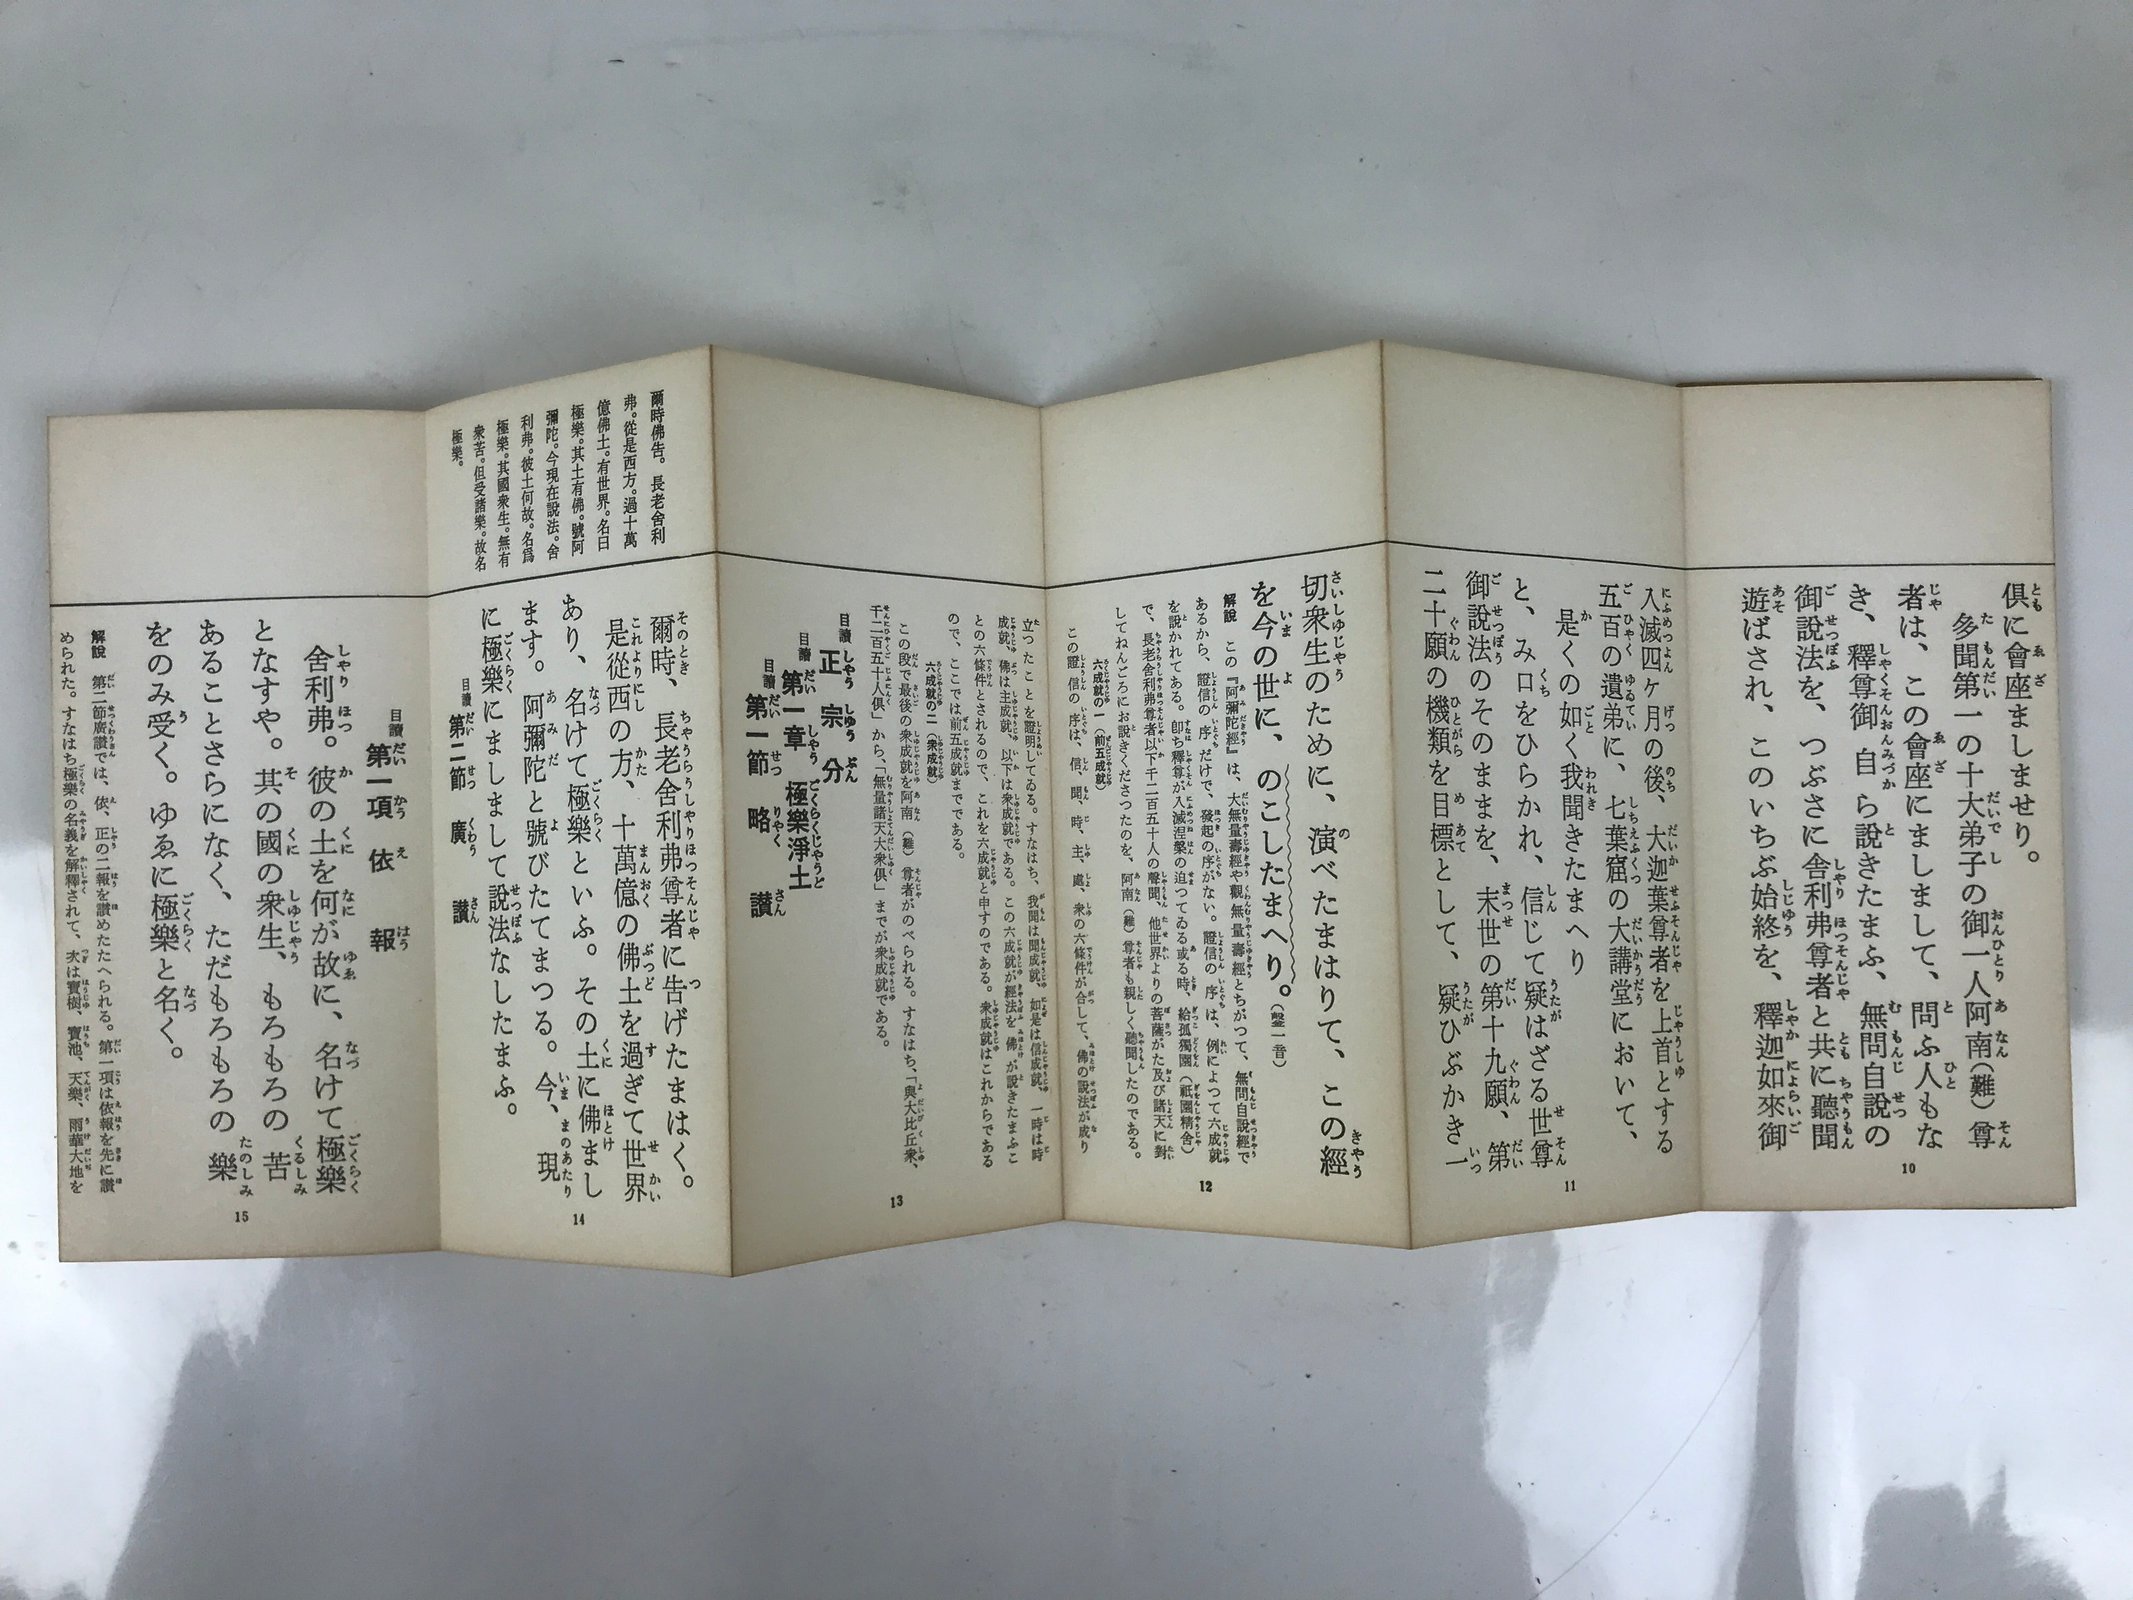 俱に會座ましませり。
多聞第一の十大弟子の御一人阿南(難)尊
者は、この會座にましまして、問ふ人もな
き、釋尊御自ら說きたまふ、無問自說の
御說法を、つぶさに舎利弗尊者と共に聽聞
遊ばされ、このいちぶ始終を、釋迦如來御
10
入滅四ヶ月の後、大迦葉尊者を上首とする
五百の遺弟に、七葉窟の大講堂において、
是くの如く我聞きたまへり
と、み口をひらかれ、信じて疑はざる世尊
御說法のそのままを、末世の第十九願、第
二十願の機類を目標として、疑ひぶかき一
11
切衆生のために、演べたまはりて、この經
を今の世に、のこしたまへり。(盤一音)
解說 この『阿彌陀經』は、大無量壽經や觀無量壽經とちがつて、無問自說經で
あるから、證信の序だけで、發起の序がない。證信の序は、例によつて六成就
を說かれてある。卽ち釋尊が入滅涅槃の迫つてゐる或る時、給孤獨園(祇園精舎)
で、長老舎利弗尊者以下千二百五十人の聲聞、他世界よりの菩薩がた及び諸天に對
してねんごろにお說きくださつたのを、阿南(難)尊者も親しく聽聞したのである。
六成就の一(前五成就)
この證信の序は、信、聞、時、主、處、衆の六條件が合して、佛の說法が成り
12
立つたことを證明してゐる。すなはち、我聞は聞成就、如是は信成就、一時は時
成就、佛は主成就、以下は衆成就である。この六成就が經法を、佛が說きたまふこ
との六條件とされるので、これを六成就と申すのである。衆成就はこれからである
ので、ここでは前五成就までである。
六成就の二(衆成就)
この段で最後の衆成就を阿南(難)尊者がのべられる。すなはち、「與大比丘衆、
千二百五十人俱」から、「無量諸天大衆俱」までが衆成就である。
目讀 正宗分
目讀 第一章 極樂淨土
目讀 第一節 略讃
13
爾時佛告。長老舎利
弗。從是西方。過十萬
億佛土。有世界。名曰
極樂。其土有佛。號阿
彌陀。今現在說法。舎
利弗。彼土何故。名爲
極樂。其國衆生。無有
衆苦。但受諸樂。故名
極樂。
爾時、長老舎利弗尊者に告げたまはく。
是從西の方、十萬億の佛土を過ぎて世界
あり、名けて極樂といふ。その土に佛まし
ます。阿彌陀と號びたてまつる。今、現
に極樂にましまして說法なしたまふ。
目讀 第二節 廣讃
14
目讀 第一項 依報
舎利弗。彼の土を何が故に、名けて極樂
となすや。其の國の衆生、もろもろの苦
あることさらになく、ただもろもろの樂
をのみ受く。ゆゑに極樂と名く。
解說 第二節廣讃では、依、正の二報を讃めたたへられる。第一項は依報を先に讃
められた。すなはち極樂の名義を解釋されて、次は寶樹、寶池、天樂、雨華大地を
15